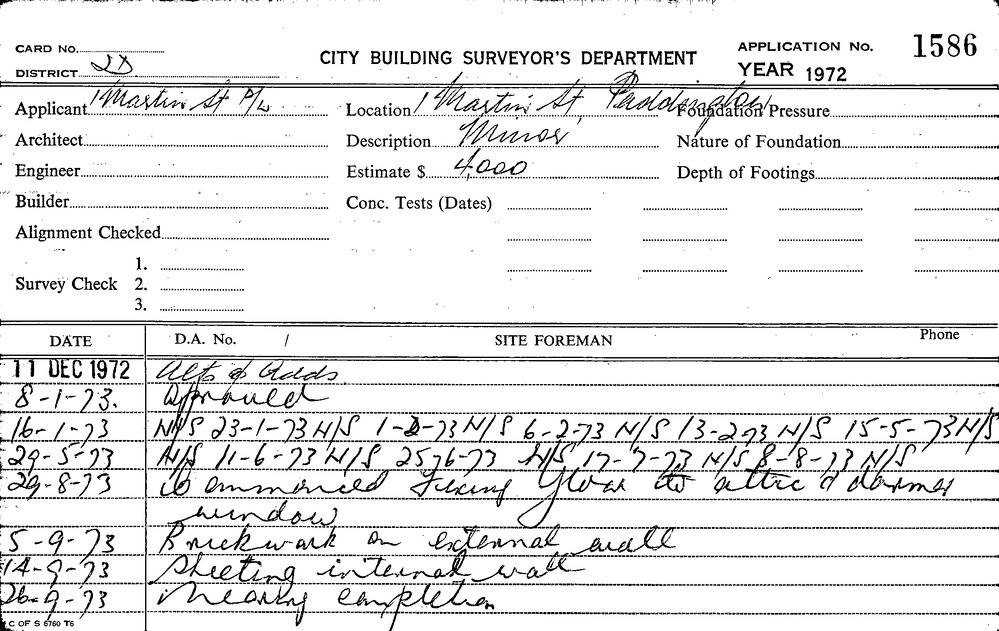 CARD No.
DISTRICT
CITY BUILDING SURVEYOR'S DEPARTMENT
APPLICATION No. 1586
YEAR 1972
Applicant 1 Martin St P/L Location 1 Martin St, Paddington Foundation Pressure
Architect Description Minor Nature of Foundation
Engineer Estimate $ 4,000 Depth of Footings
Builder Conc. Tests (Dates)
Alignment Checked
1.
Survey Check 2.
3.
DATE D.A. No. / SITE FOREMAN Phone
11 DEC 1972 Alts & Adds.
8-1-73. Approved
16-1-73 N/S 23-1-73 N/S 1-2-73 N/S 6-2-73 N/S 13-2-73 N/S 15-5-73 N/S
29-5-73 N/S 11-6-73 N/S 25-6-73 N/S 17-7-73 N/S 8-8-73 N/S
29-8-73 Commenced Fixing to attic & dormer
window
5-9-73 Brickwork on external wall
14-9-73 Sheeting internal wall
26-9-73 Nearing completion
C OF S 6760 T6